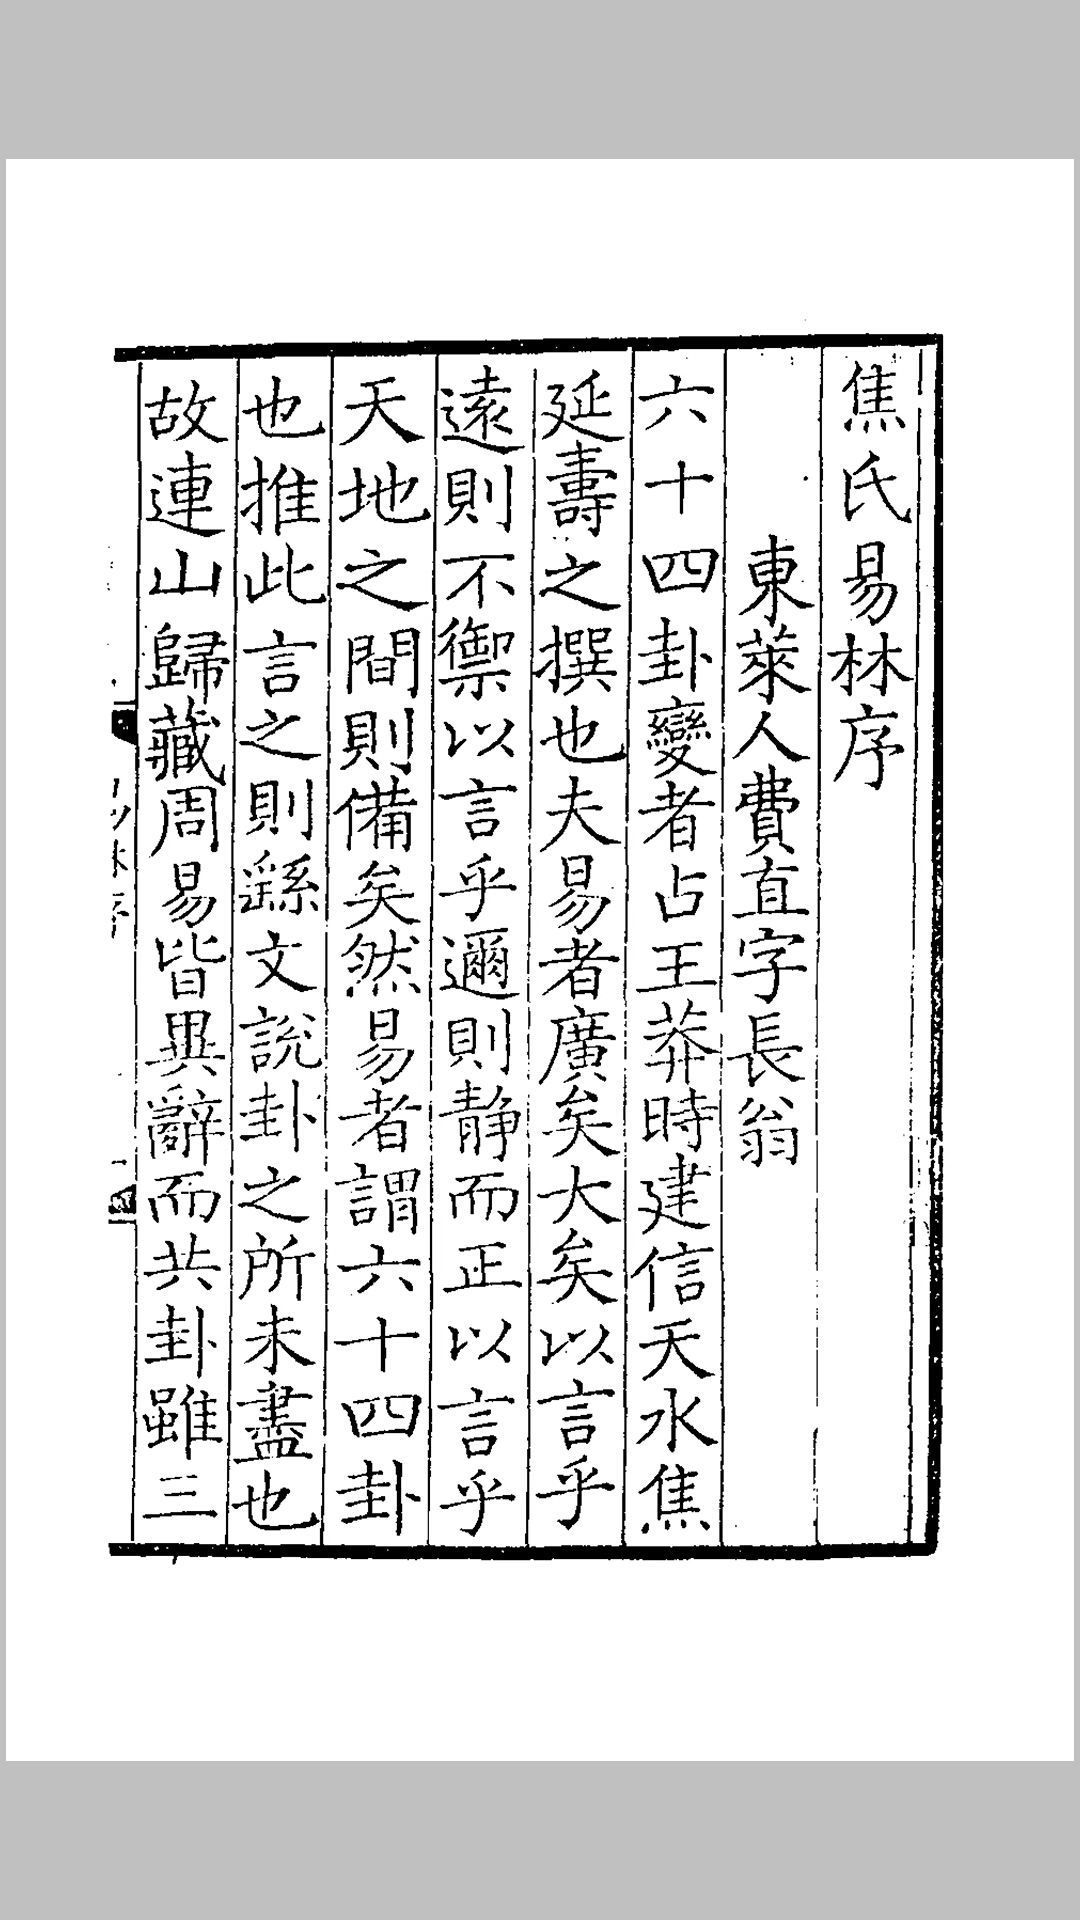 焦氏易林序
東萊人費直字長翁
六十四卦變者占王莽時建信天水焦
延壽之撰也夫易者廣矣大矣以言乎
遠則不禦以言乎邇則静而正以言乎
天地之間則備矣然易者謂六十四卦
也推此言之則繇文說卦之所未盡也
故連山歸藏周易皆異辭而共卦雖三